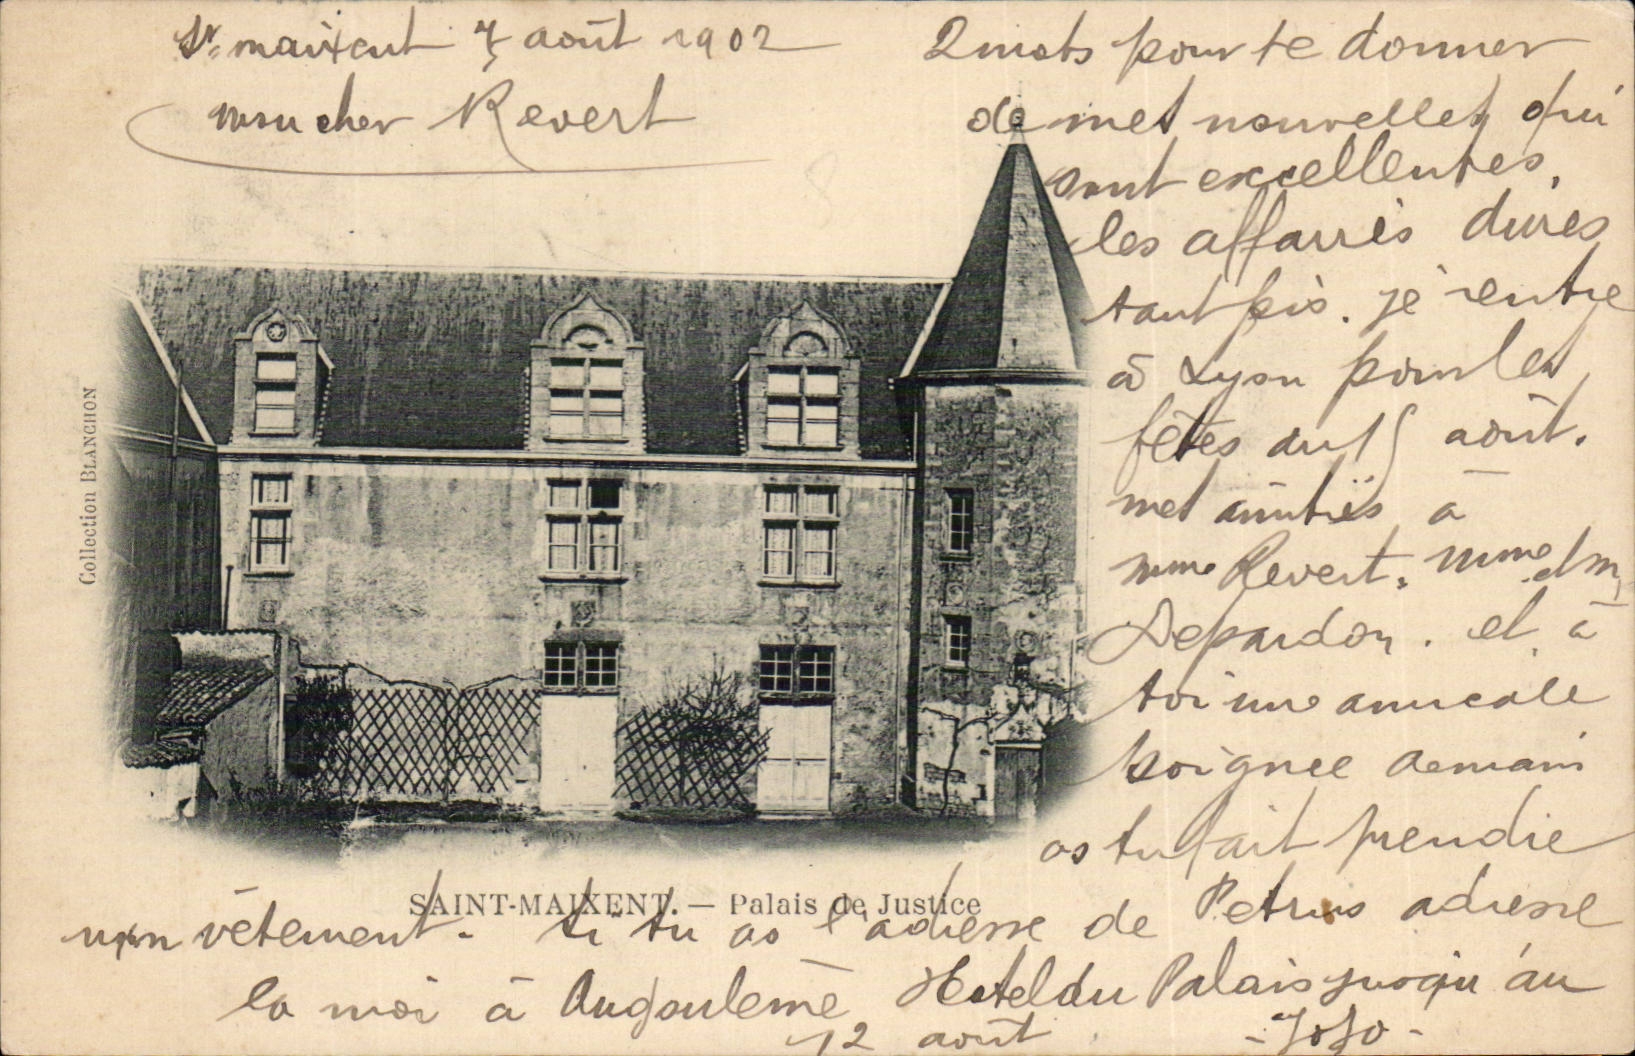 St maixent 7 août 1902
mon cher Revert
2 mots pour te donner
de mes nouvelles qui
sont excellentes,
les affaires dures
tant pis. je rentre
à Lyon pour les
fêtes du 15 août.
mes amitiés à
mme Revert. mme et m
Depardon. et à
toi une amicale
poignee demain
as tu fait prendre
mon vêtement. Si tu as l'adresse de Petrus adresse
la moi à Angoulême Hotel du Palais jusqu'au
12 août - Jojo -
SAINT-MAIXENT. — Palais de Justice
Collection BLANCHON